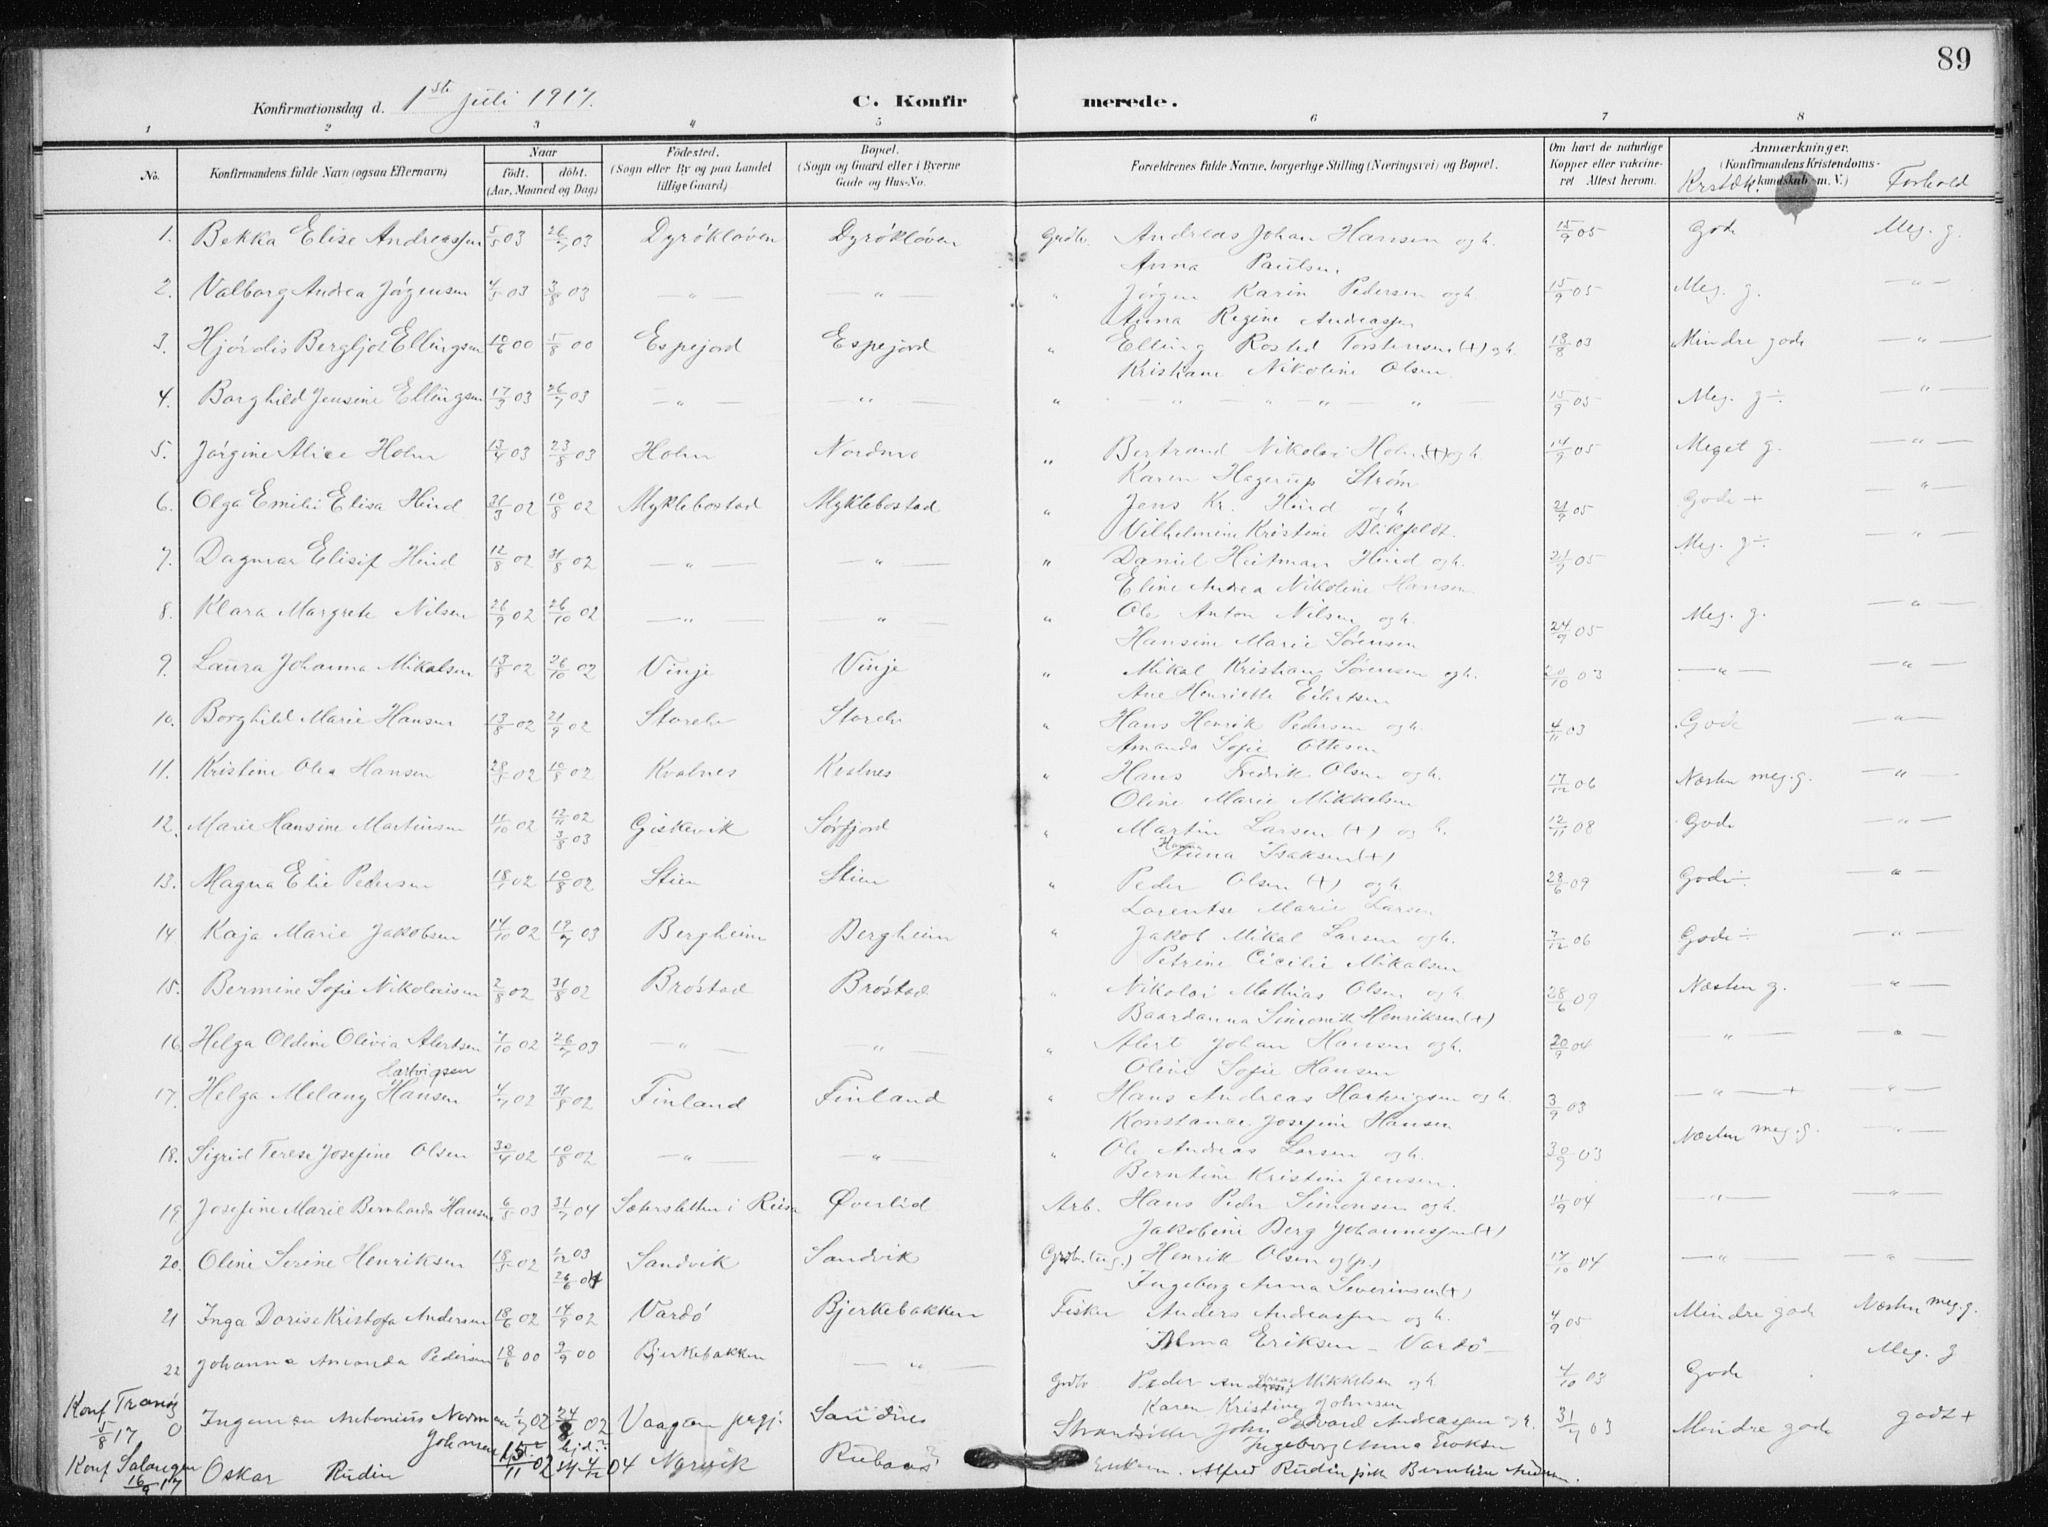 89
Konfirmationsdag d. 1ste Juli 1917.
C. Konfirmerede.
1 2 3 4 5 6 7 8
No. Konfirmandens fulde Navn (ogsaa Efternavn) Naar født. døbt. (Aar, Maaned og Dag) Fødested. (Sogn eller By og paa Landet tillige Gaard) Bopæl. (Sogn og Gaard eller i Byerne Gade og Hus-No. Forældrenes fulde Navne, borgerlige Stilling (Næringsvei) og Bopæl. Om havt de naturlige Kopper eller vaccineret Attest herom. Anmærkninger. (Konfirmandens Kristendomskundskab m. V.) Krstdk. Forhold
1. Bekka Elise Andreassen 5/5 03 26/7 03 Dyrøkløven Dyrøkløven Grdbr. Andreas Johan Hansen og h. 15/9 05 Gode Meg. g.
Anna Paulsen
2. Valborg Andrea Jørgensen 4/5 03 3/8 03 — " — — " — " Jørgen Karin Pedersen og h. 15/9 05 Meg. g. — " —
Anna Regine Andreassen
3. Hjørdis Bergljot Ellingsen 10/6 00 5/8 00 Espejord Espejord " Elling Rosted Torstensen (+) og h. 13/8 03 Mindre gode — " —
Kristiane Nikoline Olsen
4. Borghild Jensine Ellingsen 17/3 03 26/7 03 — " — — " — " — " — " — " — 15/9 05 Meg. g ÷ — " —
5. Jørgine Alice Holm 13/4 03 23/8 03 Holm Nordmo " Bertrand Nikolai Holm (+) og h. 14/9 05 Meget g. — " —
Karen Hagerup Strøm
6. Olga Emilie Elisa Hind 31/3 02 10/8 02 Myklebostad Myklebostad " Jens Kr. Hind og h. 21/9 05 Gode + — " —
Vilhelmine Kristine Blikfeldt.
7. Dagmar Elisif Hind 12/8 02 31/8 02 — " — — " — " Daniel Heitman Hind og h. 21/9 05 Meg. g ÷ — " —
Eline Andrea Nikoline Hansen
8. Klara Margrete Nilsen 26/9 02 26/10 02 — " — — " — " Ole Anton Nilsen og h. 24/9 05 Meg. g. — " —
Hansine Marie Sørensen
9. Laura Johanna Mikalsen 13/8 02 26/10 02 Vinje Vinje " Mikal Kristian Sørensen og h. 20/10 03 — " — — " —
Ane Henriette Eilertsen
10. Borghild Marie Hansen 13/8 02 21/9 02 Storelv Storelv " Hans Henrik Pedersen og h. 4/11 03 Gode — " —
Amanda Sofie Ottesen
11. Kristine Olea Hansen 28/5 02 10/8 02 Kvalnes Kvalnes " Hans Fredrik Olsen og h. 17/12 06 Næsten meg. g. — " —
Oline Marie Mikkelsen
12. Marie Hansine Martinsen 11/10 02 12/11 02 3/8 03 Giskevik Sørfjord " Martin Larsen (+) og h. 12/11 08 Gode — " —
Hanna Anna Isaksen (+)
13. Magna Elie Pedersen 18/7 02 10/8 02 Stien Stien " Peder Olsen (+) og h. 28/6 09 Gode ÷ — " —
Lorentse Marie Larsen
14 Kaja Marie Jakobsen 14/10 02 19/7 03 Bergheim Bergheim " Jakob Mikal Larsen og h. 7/12 06 Gode ÷ — " —
Petrine Cecilie Mikalsen
15. Bermine Sofie Nikolaisen 2/8 02 31/8 02 Brøstad Brøstad " Nikolai Mathias Olsen og h. 28/6 09 Næsten g. — " —
Baardanna Simonik Henriksen (+)
16. Helga Oldine Olivia Alertsen 4/10 02 26/7 03 — " — — " — " Alert Johan Hansen og h. 20/9 04 — " — — " —
Oline Sofie Hansen
Hartvigsen
17. Helga Melany Hansen 4/7 02 31/8 02 Finland Finland " Hans Andreas Hartvigsen og h. 3/9 03 — " — + — " —
Konstance Josefine Hansen
18. Sigrid Terese Josefine Olsen 30/4 02 10/8 02 — " — — " — " Ole Andreas Larsen og h. 30/9 03 Næsten meg. g. — " —
Berntine Kristine Jensen.
19 Josefine Marie Bernharda Hansen 6/5 03 31/7 04 Sæterslettun i Reisa Øverlid Arb. Hans Peder Simonsen og h. 11/9 04 — " — — " —
Jakobine Berg Johannessen (+)
20. Oline Serine Henriksen 18/5 02 1/12 03 26/6 04 Sandvik Sandvik Grdbr. (ug.) Henrik Olsen og (p.) 17/10 04 — " — — " —
Ingeborg Anna Severinsen (+)
21 Inga Dorise Kristofa Andersen 18/6 02 14/9 02 Vardø Bjerkebakken Fisker Anders Andreassen og h. 4/9 05 Mindre gode Næsten meg. g.
Alma Eriksen – Vardø –
22 Johanna Amanda Pedersen 18/6 00 9/9 00 Bjerkebakken — " — Grdbr Peder Andreas Mikkelsen og h. 4/10 03 Gode Meg. g
Karen Kristine Johnsen
Konf Tranø 5/8 17 Ingeman Antonius Norman Johnsen 1/7 02 24/8 02 Vaagan prgj. Sandnes Strandsitter John Edvard Andreassen og h. 31/7 03 Mindre gode godt +
Ingeborg Anna Eriksen
Konf Salangen 16/9 17 Oskar Rudin 15/11 02 hjd. 4/12 04 Narvik Alfred Rudin Berntine